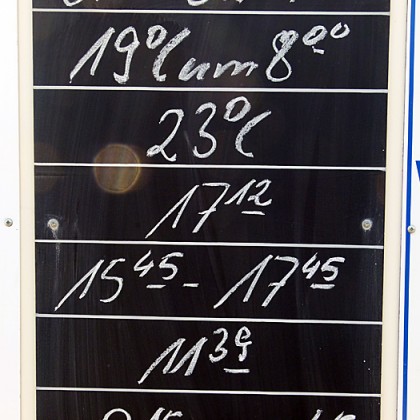 19°C um 8⁰⁰
23°C
17¹²
15⁴⁵ - 17⁴⁵
11³⁹